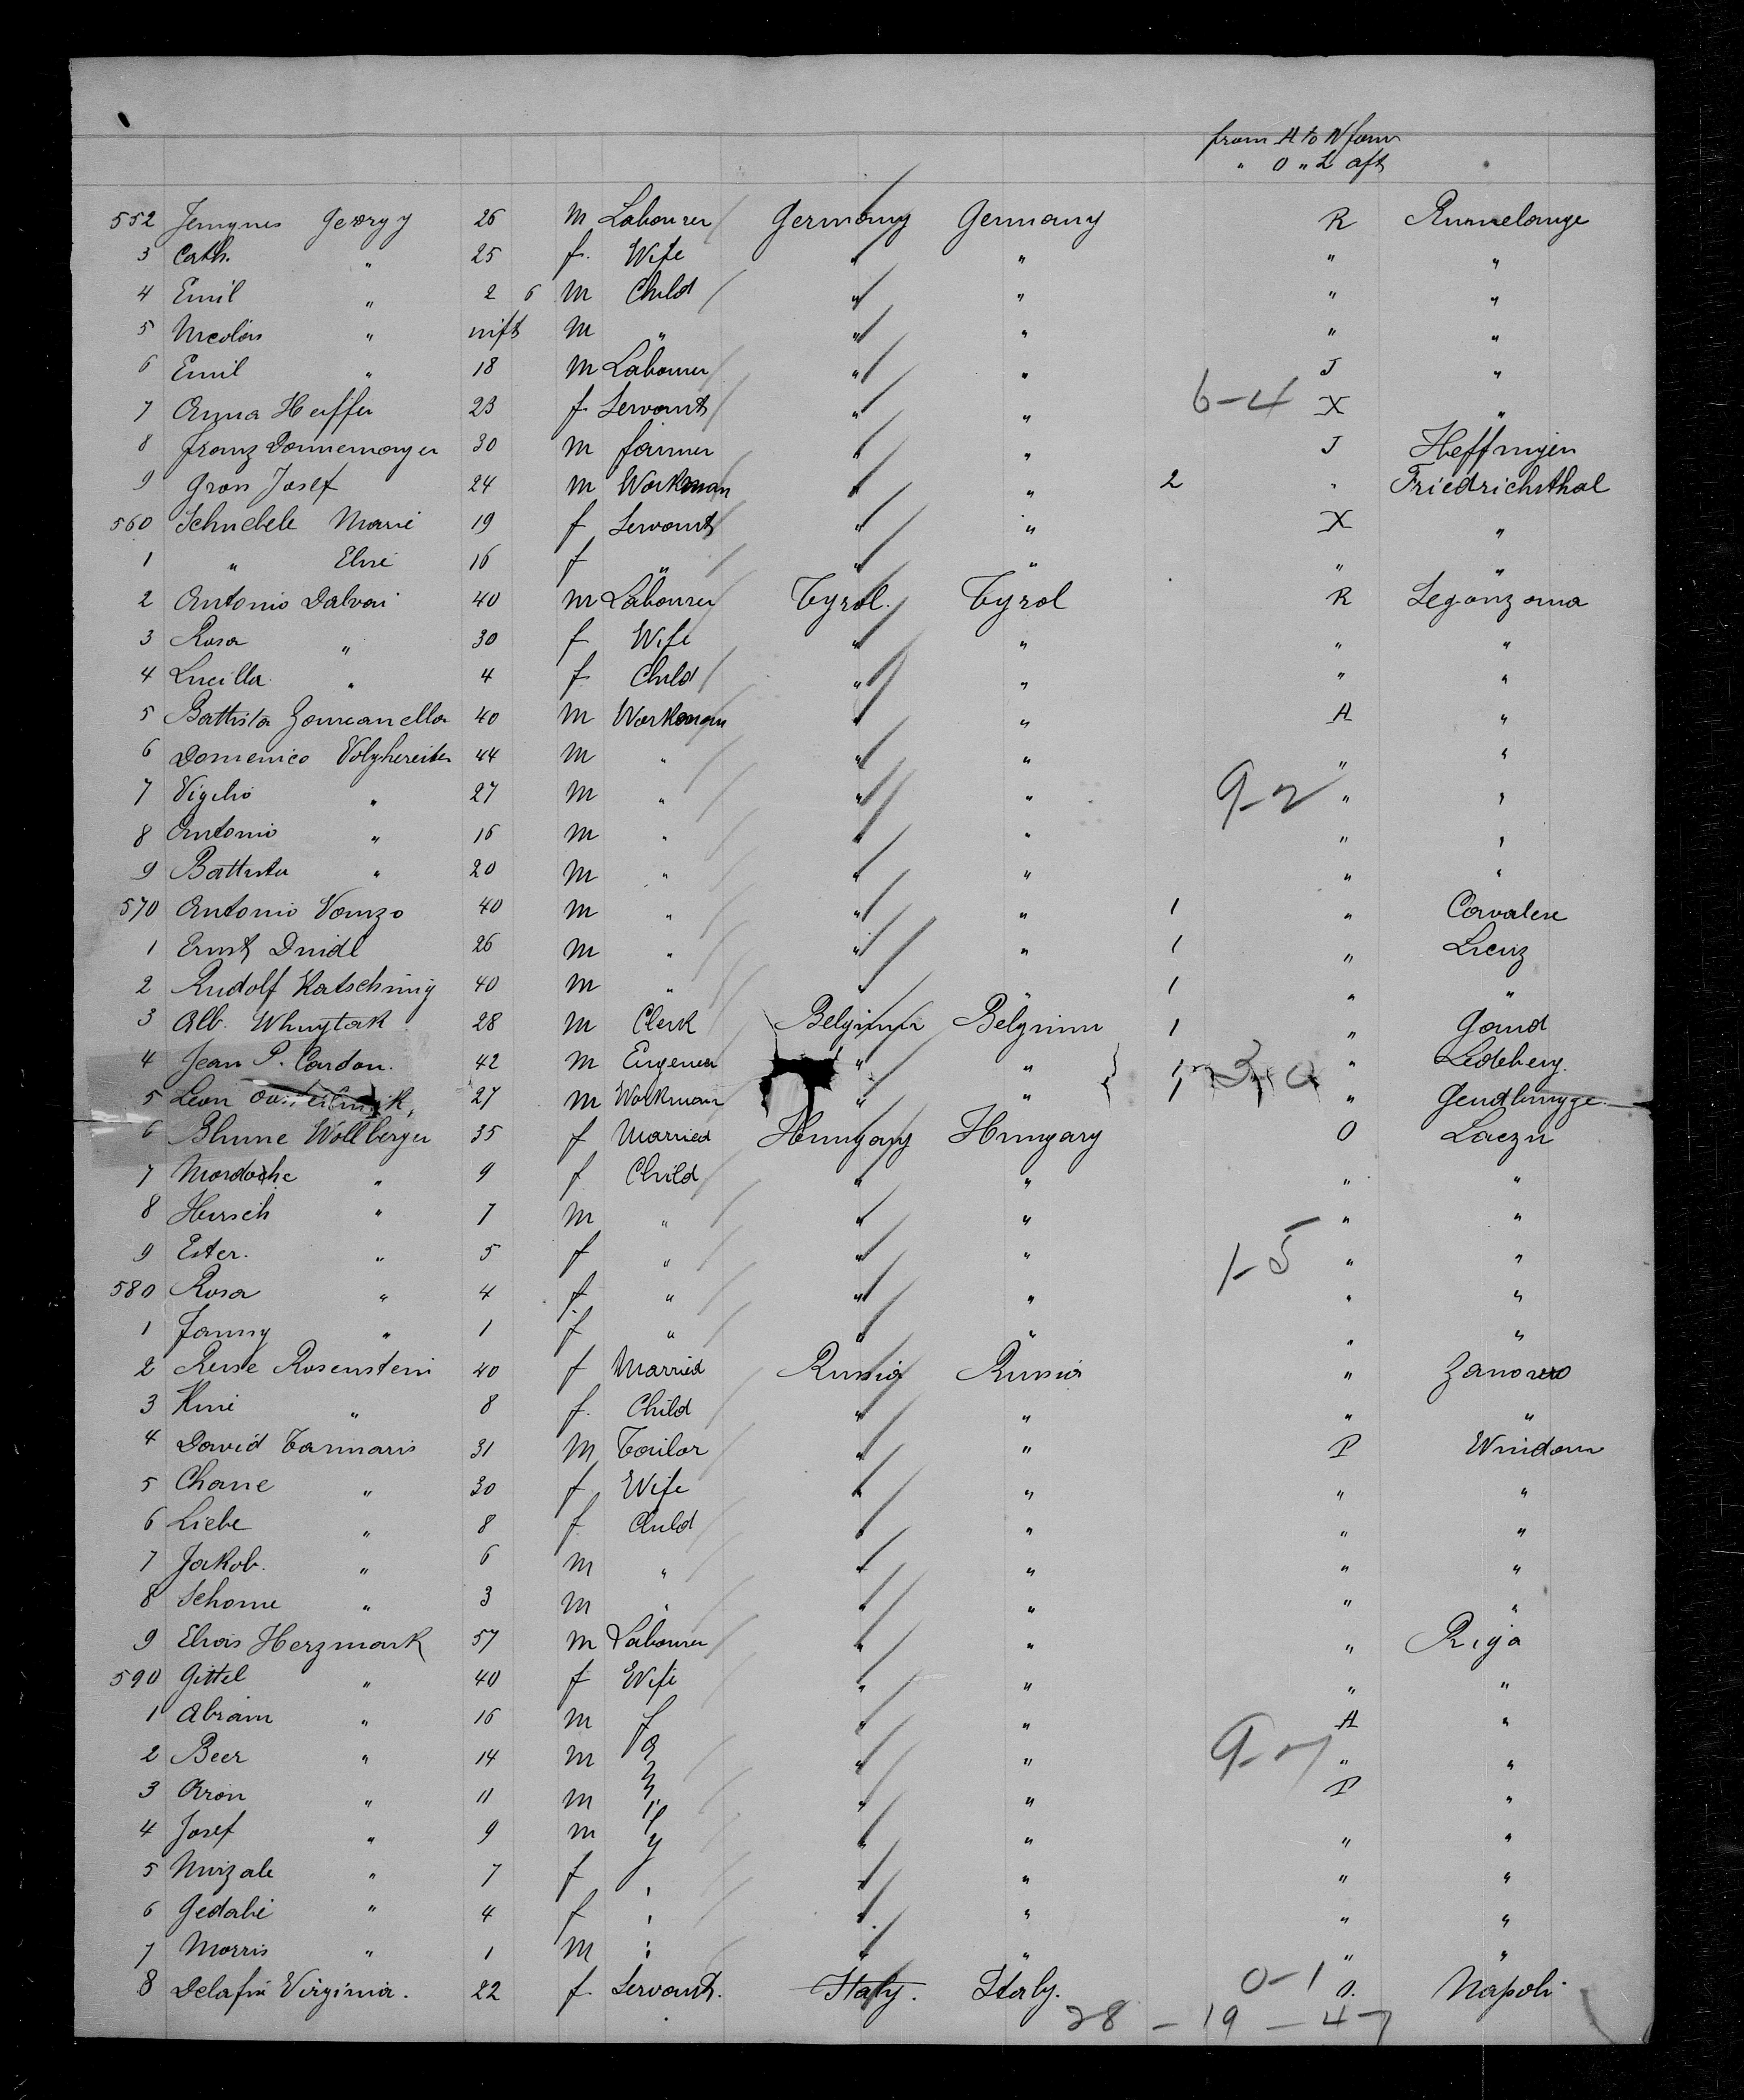 from A to N forw
" O " Z aft
552 Jemgnes Georgy 26 m Labourer Germany Germany R Rumelange
3 Cath. " 25 f. Wife " " " "
4 Emil " 2 6 m Child " " " "
5 Nicolas " inft m " " " " "
6 Emil " 18 m Labourer " " J "
7 Anna 23 f Servant " " 6-4 X "
8 Franz Donnemayer 30 m farmer " " J Heffingen
9 Gron Josef 24 m Workman " " 2 " Friedrichsthal
560 Schnebele Marie 19 f Servant " " X "
1 " Elise 16 f " " " " "
2 Antonio Dalvai 40 m Labourer Tyrol. Tyrol R Segonzona
3 Rosa " 30 f Wife " " " "
4 Lucilla " 4 f Child " " " "
5 Battista 40 m Workman " " A "
6 Domenico 44 m " " " " "
7 Vigilio " 27 m " " " 9-2 " "
8 Antonio " 16 m " " " " "
9 Battista " 20 m " " " " "
570 Antonio Vanzo 40 m " " " 1 " Cavalese
1 Ernst 26 m " " " 1 " Lienz
2 Rudolf Katschnig 40 m " " " 1 " "
3 Alb. Whuytak 28 m Clerk Belgium Belgium 1 " Gand
4 Jean P. Cardon. 42 m Engeneer " " 1 3-0 " Ledeberg.
5 Leon 27 m Workman " " 1 "
6 Blume Wollberger 35 f Married Hungary Hungary O Laczn
7 Mordoche " 9 f Child " " " "
8 Hersch " 7 m " " " " "
9 Ester. " 5 f " " " 1-5 " "
580 Rosa " 4 f " " " " "
1 Fanny " 1 f " " " " "
2 Reise Rosenstein 40 f Married Russia Russia " Zanorero
3 " 8 f. Child " " " "
4 David Tarmaris 31 m Tailor " " P Windau
5 Chane " 30 f Wife " " " "
6 Liebe " 8 f Child " " " "
7 Jakob. " 6 m " " " " "
8 Schome " 3 m " " " " "
9 Elias Herzmark 57 m Labourer " " " Riga
590 Gittel " 40 f Wife " " " "
1 Abram " 16 m " " A "
2 Beer " 14 m " " 9-7 " "
3 Aron " 11 m " " P "
4 Josef " 9 m " " " "
5 " 7 f " " " " "
6 Gedalie " 4 f " " " " "
7 Morris " 1 m " " " " "
8 Delafin Virginia. 22 f Servant. Italy. Italy. 0-1 O. Napoli
28 - 19 - 47